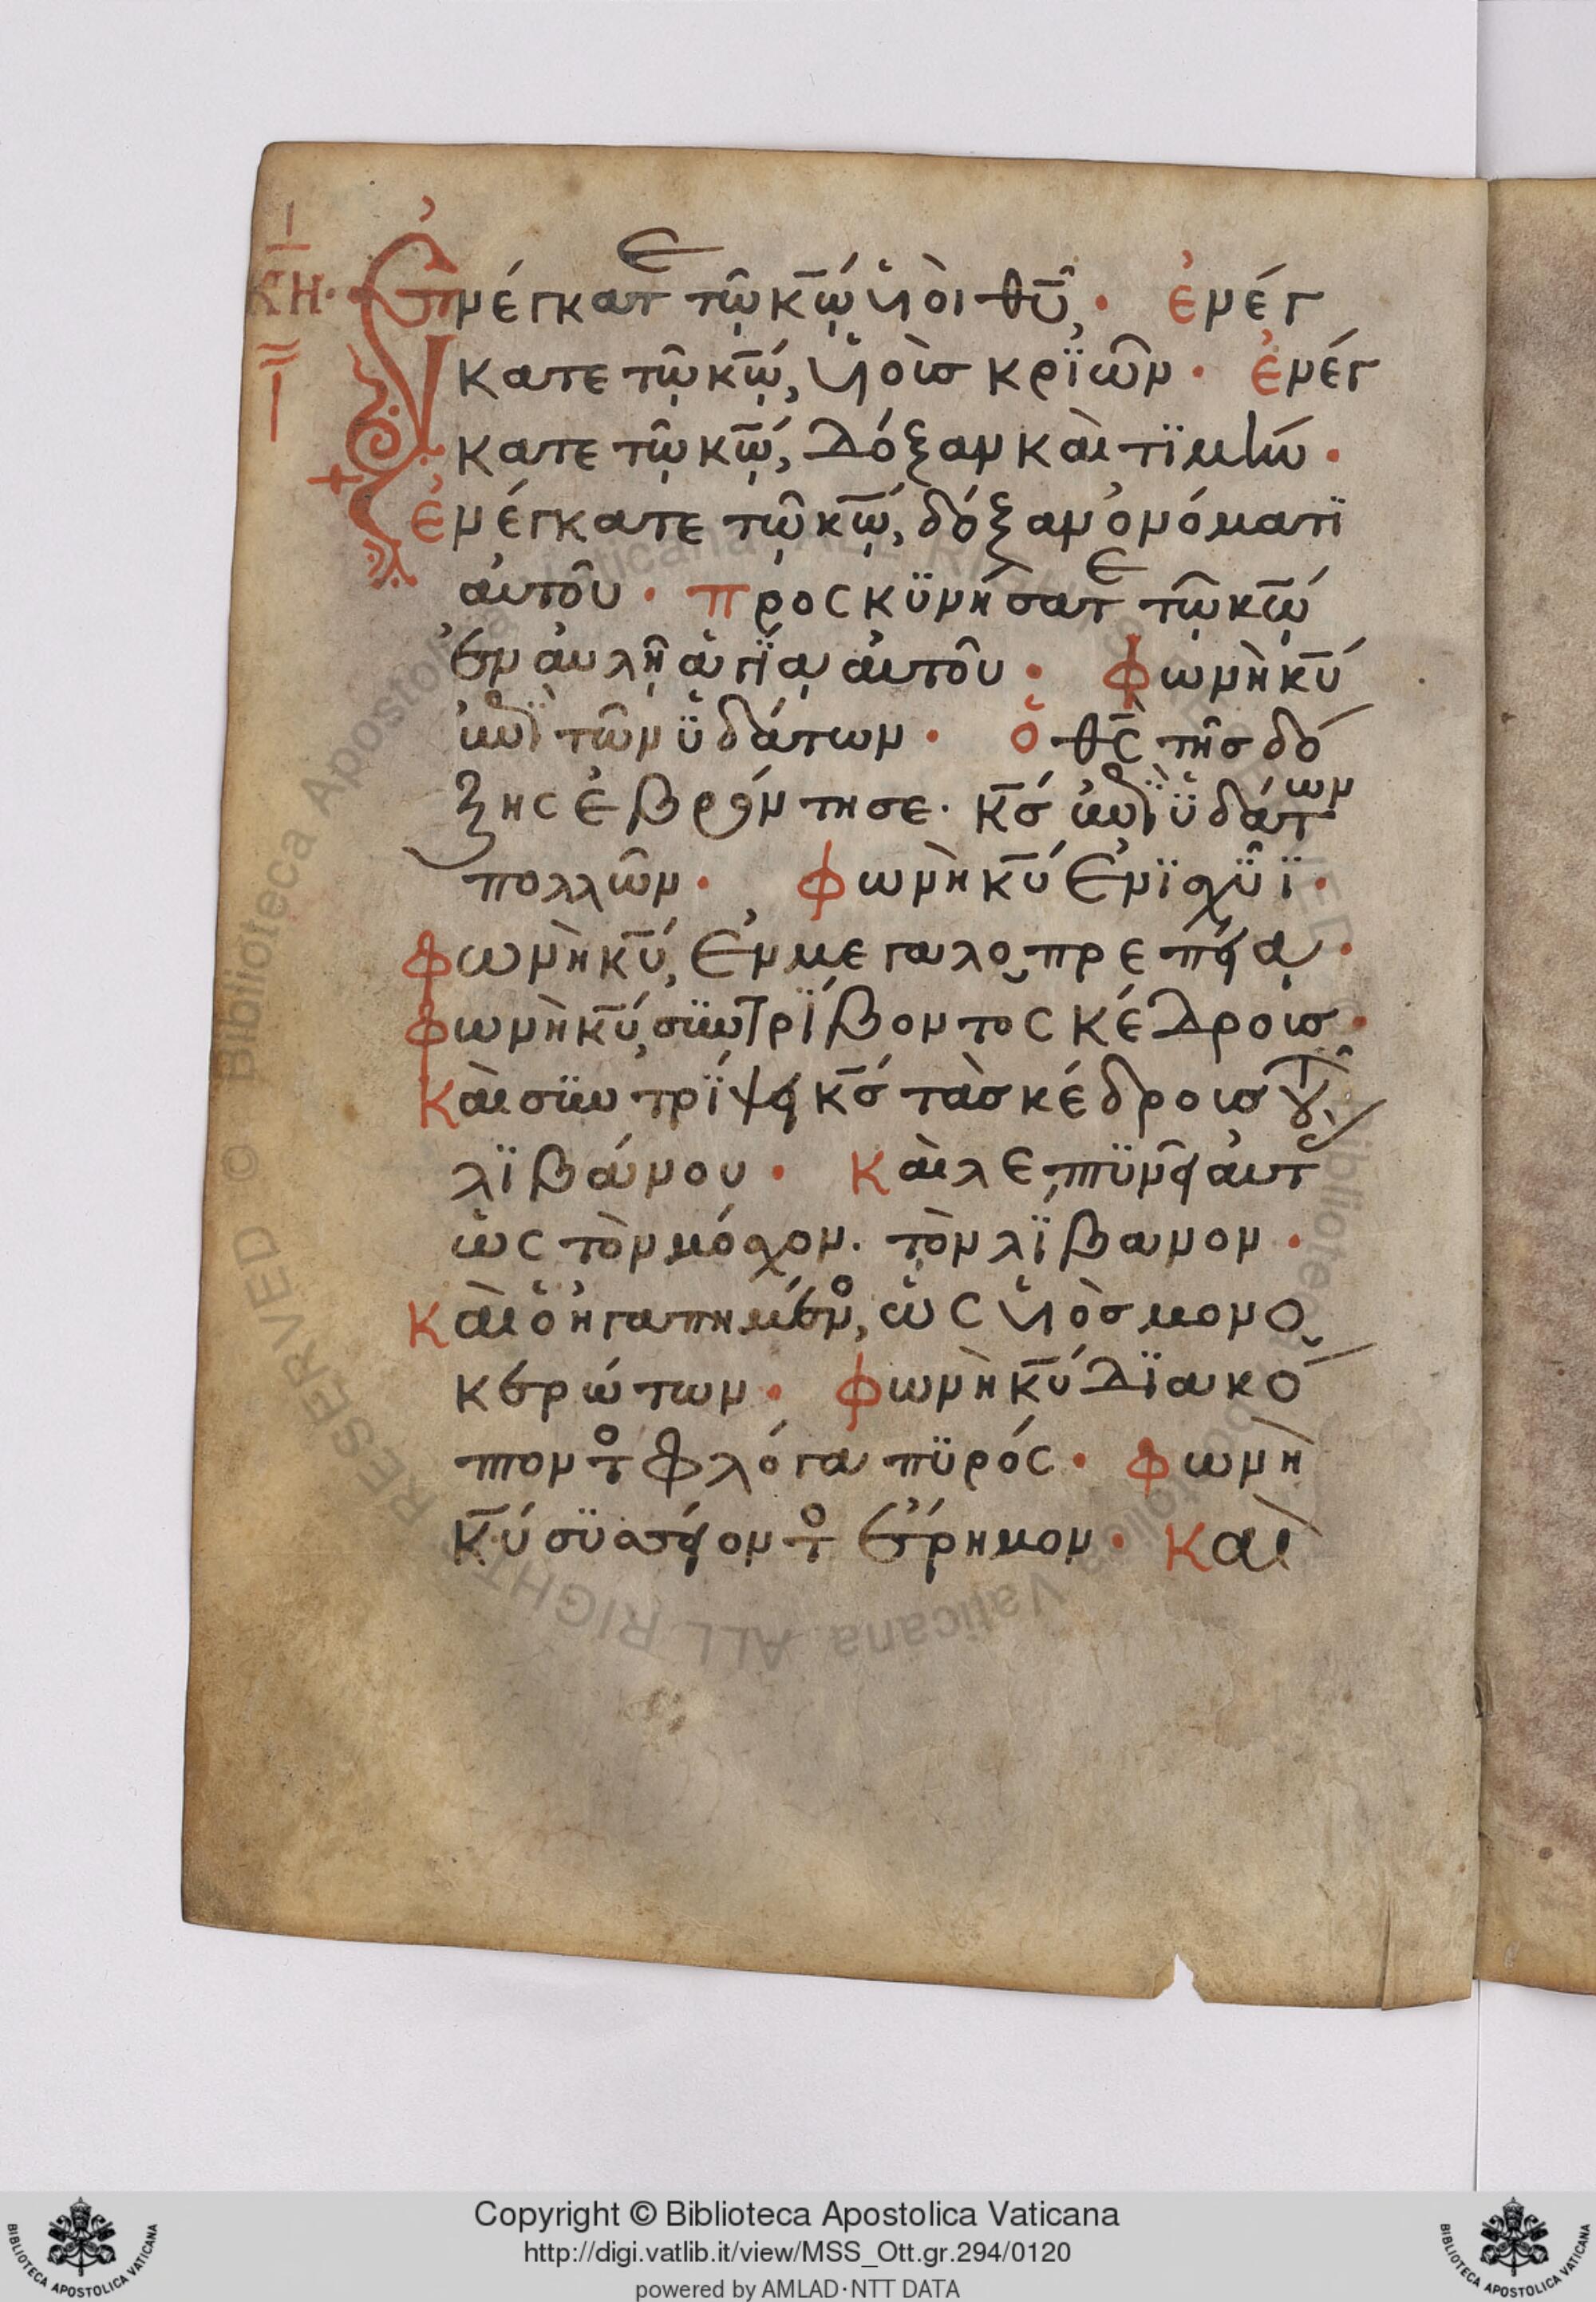 ΚΗ·
Ἐνέγκατε τῷ κ̅ῴ υἱοὶ θ̅υ̑, · ἐνέγ
κατε τῷ κ̅ῴ, υἱοὺσ κρϊῶν · ἐνέγ
κατε τῷ κ̅ῴ, δόξαν καὶ τϊμήν ·
ἐνέγκατε τῷ κ̅ῴ, δόξαν ὀνόματϊ
αὐτοῦ · προσκϋνήσατε τῷ κ̅ῴ
ἐν αὐλῇ ἁγΐᾳ αὐτοῦ · φωνὴ κ̅ύ
ἐπῒ τῶν ϋ̔δάτων · ὁ θ̅ς̀ τῆσ δό
ξης ἐβρόντησε · κ̅σ́ ἐπῒ ϋ̔δάτων
πολλῶν · φωνὴ κ̅ύ ἐν ϊσχΰϊ ·
φωνὴ κ̅ύ, ἐν μεγαλοπρεπείᾳ ·
φωνὴ κ̅ύ, σϋντρΐβοντος κέδρουσ ·
Καὶ σϋντρΐψει κ̅σ́ τὰσ κέδρουσ τοῦ
λϊβάνου · Καὶ λεπτϋνεῖ αὐτ
ὡς τὸν μόσχον · τὸν λΐβανον ·
Καὶ ὁ ἠγαπημένο, ὡς υἱὸσ μονο
κερώτων · φωνὴ κ̅ύ δϊακό
πτοντο φλόγα πϋρός · φωνὴ
κ̅ύ σϋσσείοντο ἔρημον · Καὶ
Copyright © Biblioteca Apostolica Vaticana
http://digi.vatlib.it/view/MSS_Ott.gr.294/0120
powered by AMLAD·NTT DATA